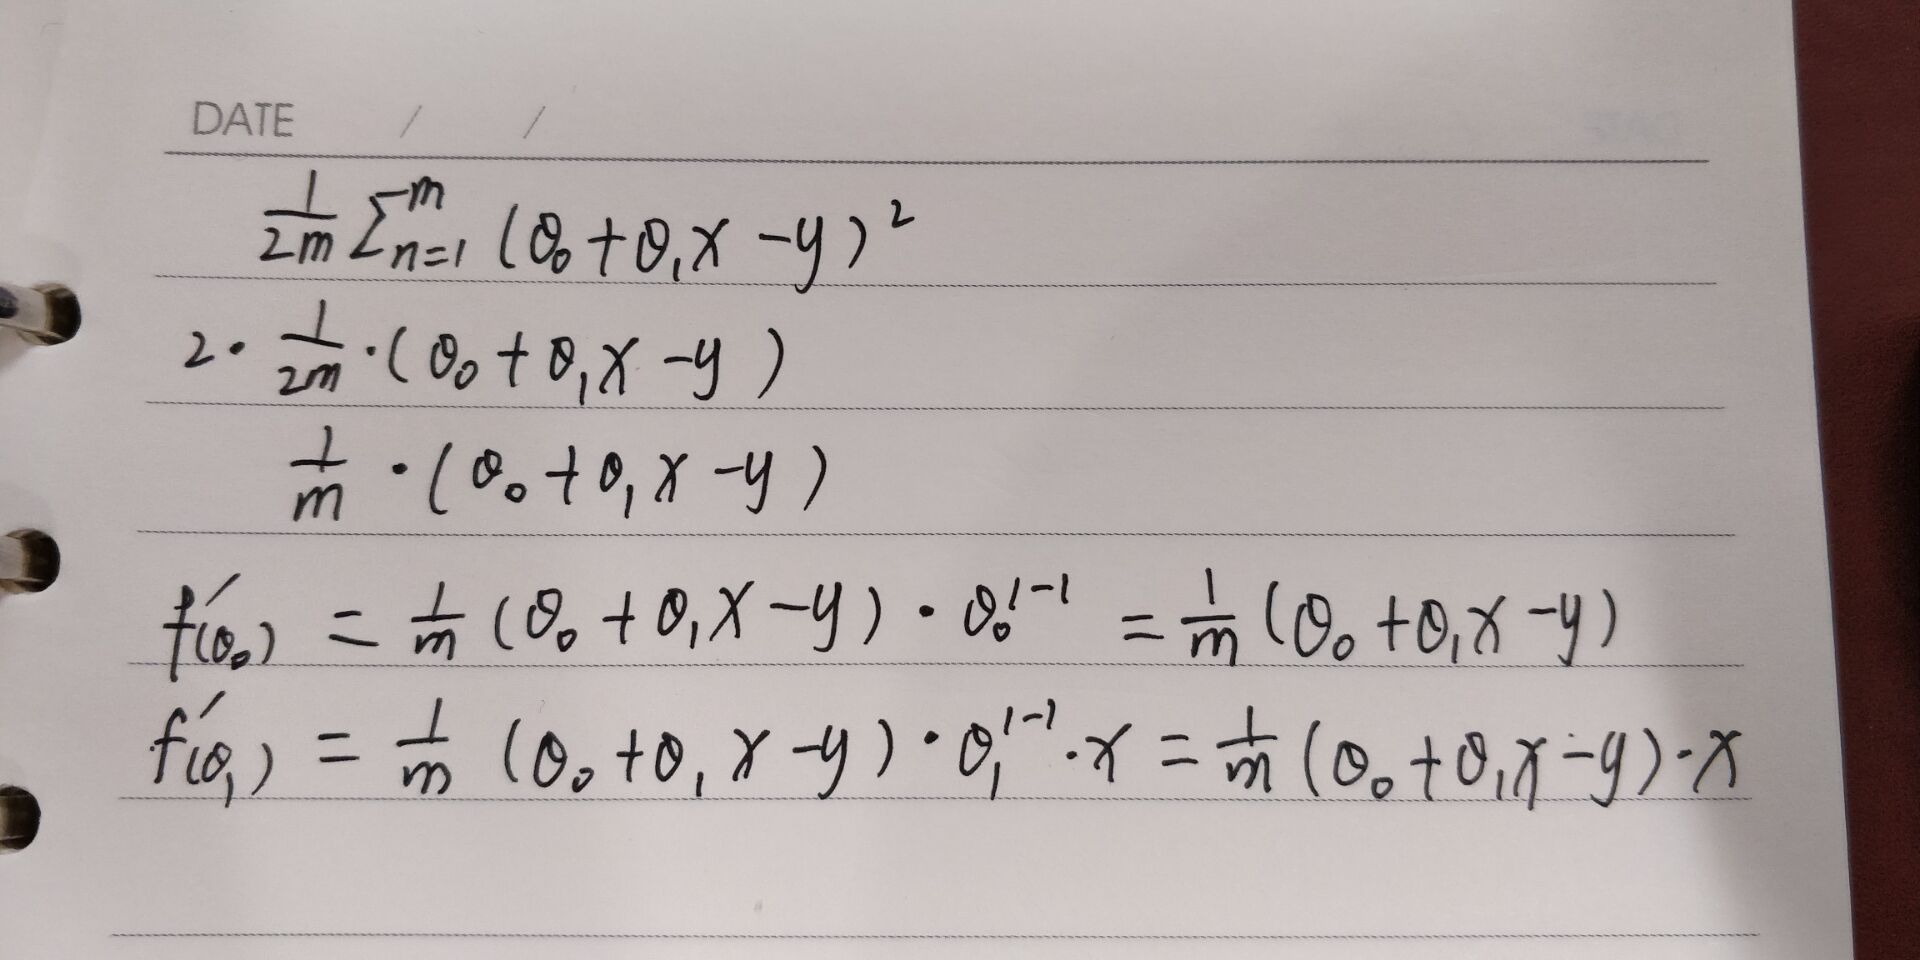 DATE / /
1/2m Σⁿ₌₁ᵐ (θ₀+θ₁x-y)²
2·1/2m·(θ₀+θ₁x-y)
1/m·(θ₀+θ₁x-y)
f′(θ₀) = 1/m (θ₀+θ₁x-y)·θ₀¹⁻¹ = 1/m (θ₀+θ₁x-y)
f′(θ₁) = 1/m (θ₀+θ₁x-y)·θ₁¹⁻¹·x = 1/m (θ₀+θ₁x-y)·x